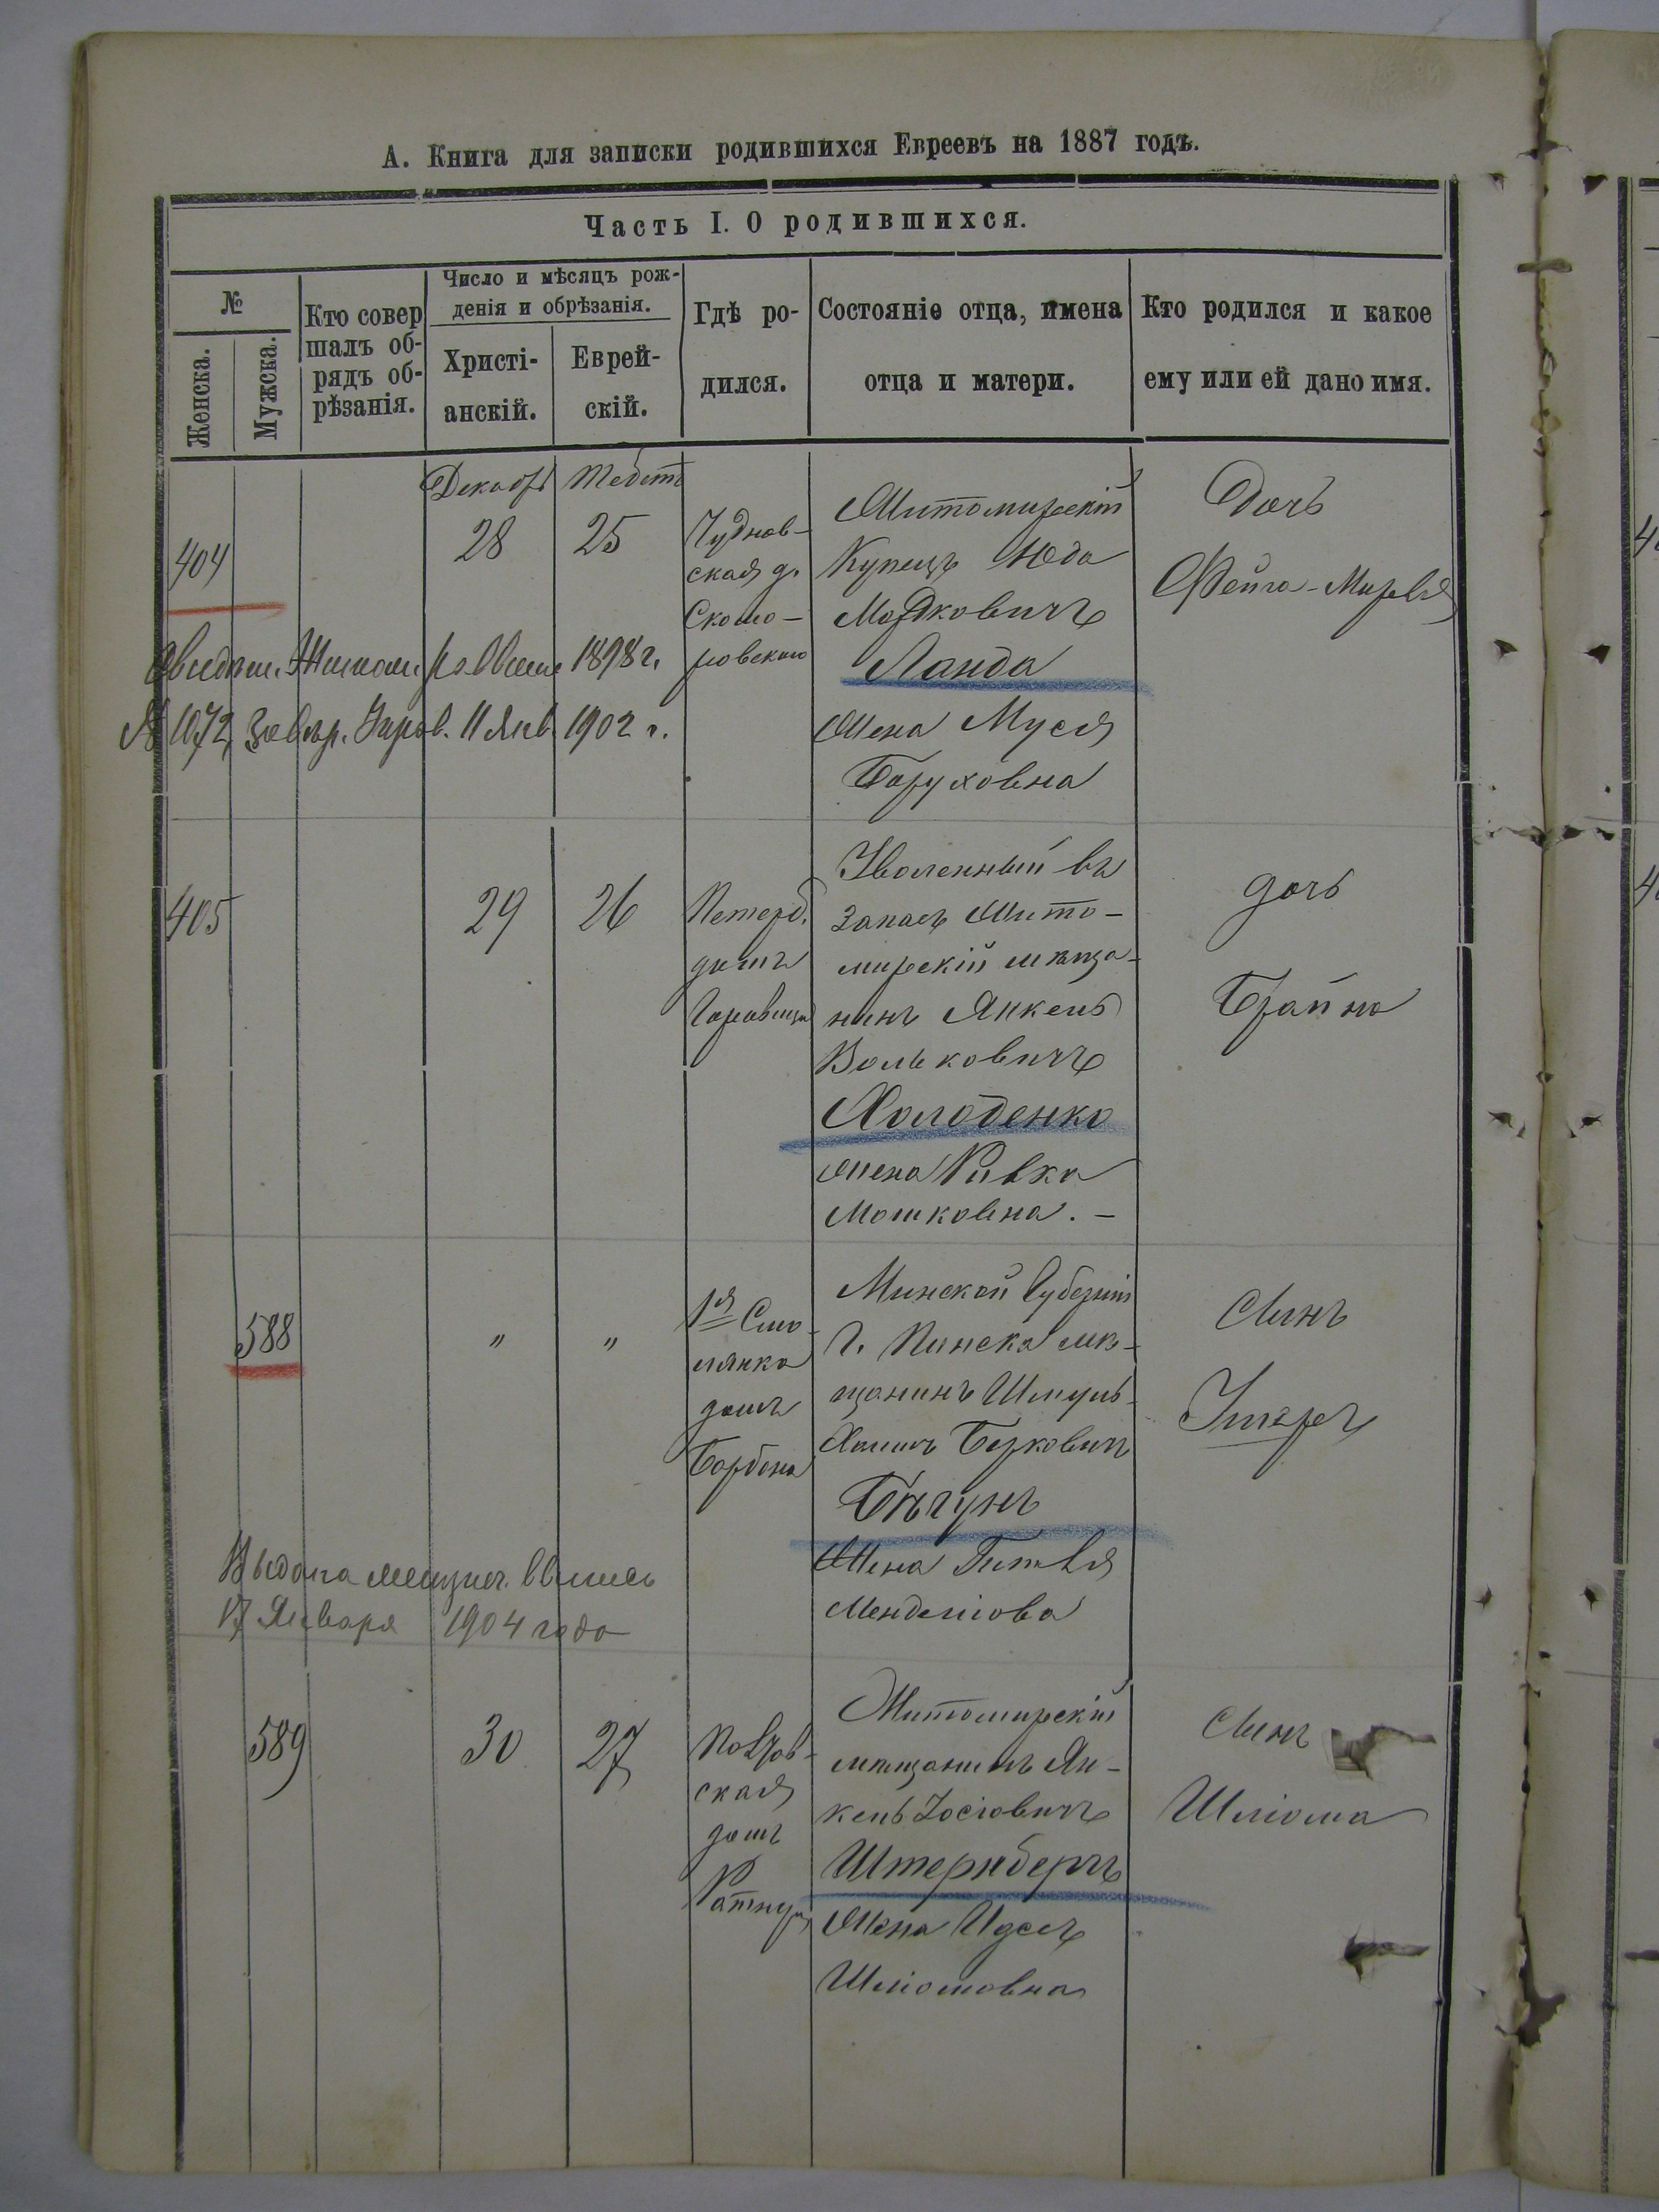 А. Книга для записки родившихся Евреевъ на 1887 годъ.
Часть I. О родившихся.
№
Женска.
Мужска.
Кто совер
шалъ об-
рядъ об-
рѣзанія.
Число и мѣсяцъ рож-
денія и обрѣзанія.
Христі-
анскій.
Еврей-
скій.
Гдѣ ро-
дился.
Состояніе отца, имена
отца и матери.
Кто родился и какое
ему или ей дано имя.
404
Декабрь
28
Тебетъ
25
Чуднов-
ская д.
Скомо-
ровскаго
Житомирскій
Купецъ Юда
Мордковичъ
Ланда
Жена Муся
Баруховна
Дочь
Фейга-Мирля
1898 г.
№ 1072, 11 Янв. 1902 г.
405
29
26
Петерб.
домъ
Горовица
Уволенный въ
запасъ Жито-
мирскій мѣща-
нинъ Янкель
Вольковичъ
Холоденко
жена Ривка
Мошковна. -
дочь
Брайна
588
"
"
1я Смо-
лянка
домъ
Минской Губерніи
г. Пинска мѣ-
щанинъ Шмуль-
Хаимъ Берковичъ
Бѣгунъ
Жена Гитля
Менделіова
Сынъ
Выдана
17 Января 1904 года
589
30
27
ская
домъ
Житомирскій
мѣщанинъ Ян-
кель Іосіовичъ
Штернбергъ
Жена Идесъ
Шліомовна
Сынъ
Шліома